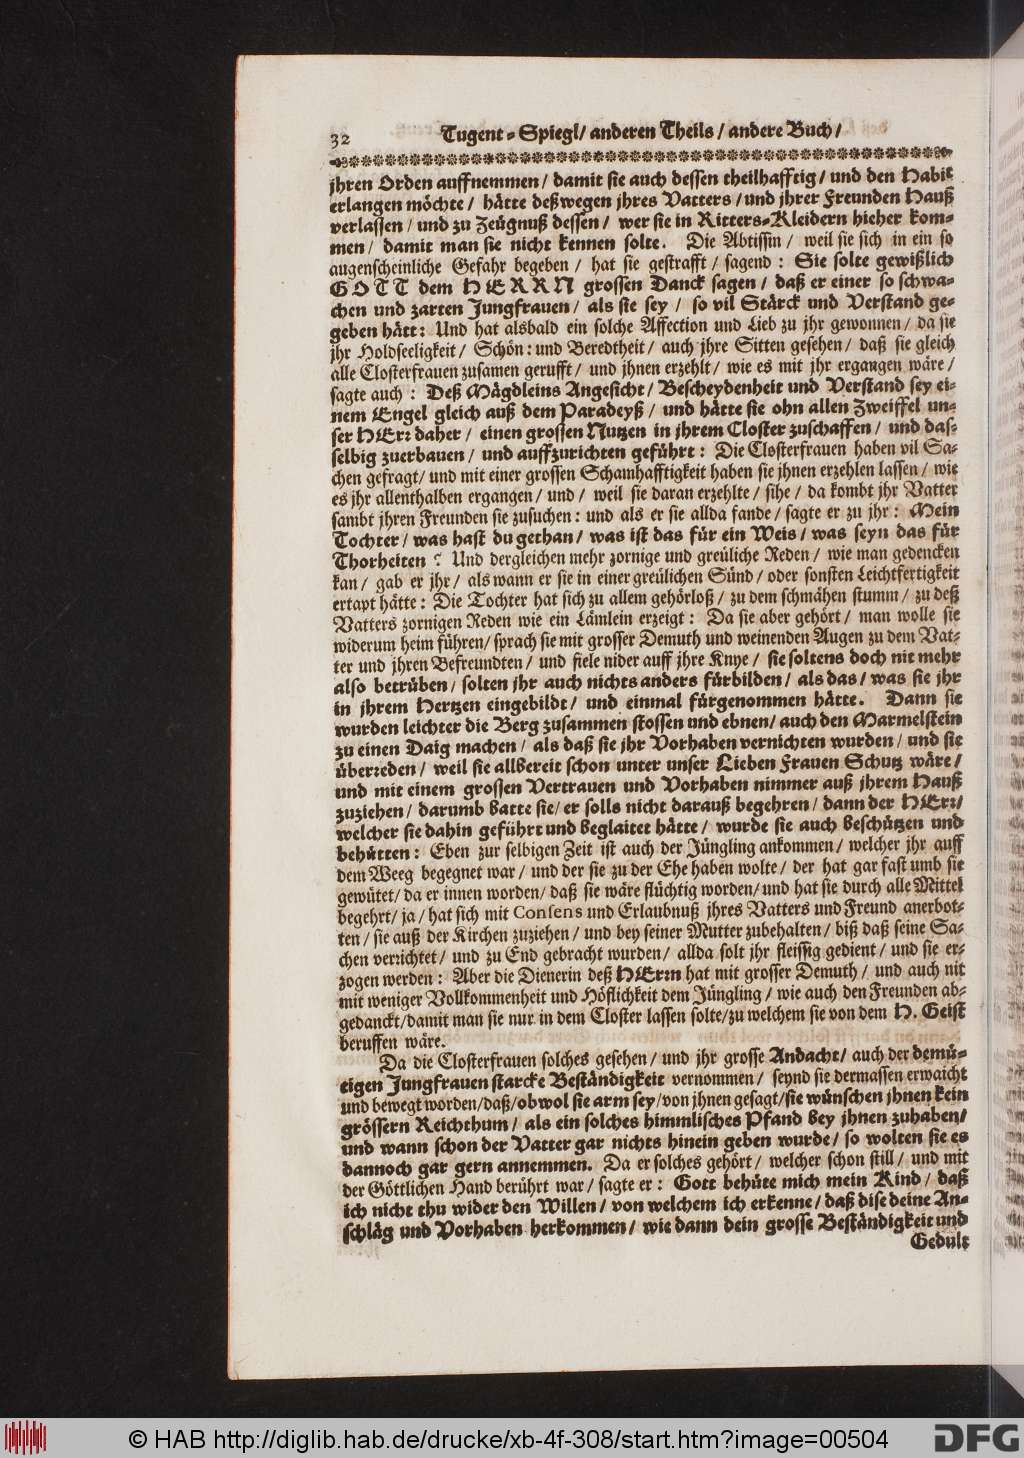 32
Tugent-Spiegl/ anderen Theils/ andere Buch/
jhren Orden auffnemmen/ damit sie auch dessen theilhafftig/ und den Habit
erlangen möchte/ hätte deßwegen jhres Vatters/ und jhrer Freunden Hauß
verlassen/ und zu Zeügnuß dessen/ wer sie in Ritters-Kleidern hieher kom-
men/ damit man sie nicht kennen solte. Die Abtissin/ weil sie sich in ein so
augenscheinliche Gefahr begeben/ hat sie gestrafft/ sagend: Sie solte gewißlich
GOTT dem HERRN grossen Danck sagen/ daß er einer so schwa-
chen und zarten Jungfrauen/ als sie sey/ so vil Stärck und Verstand ge-
geben hätt: Und hat alsbald ein solche Affection und Lieb zu jhr gewonnen/ da sie
jhr Holdseeligkeit/ Schön: und Beredtheit/ auch jhre Sitten gesehen/ daß sie gleich
alle Closterfrauen zusamen gerufft/ und jhnen erzehlt/ wie es mit jhr ergangen wäre/
sagte auch: Deß Mägdleins Angesicht/ Bescheydenheit und Verstand sey ei-
nem Engel gleich auß dem Paradeyß/ und hätte sie ohn allen Zweiffel un-
ser HErr daher/ einen grossen Nutzen in jhrem Closter zuschaffen/ und das-
selbig zuerbauen/ und auffzurichten geführt: Die Closterfrauen haben vil Sa-
chen gefragt/ und mit einer grossen Schamhafftigkeit haben sie jhnen erzehlen lassen/ wie
es jhr allenthalben ergangen/ und/ weil sie daran erzehlte/ sihe/ da kombt jhr Vatter
sambt jhren Freunden sie zusuchen: und als er sie allda fande/ sagte er zu jhr: Mein
Tochter/ was hast du gethan/ was ist das für ein Weis/ was seyn das für
Thorheiten? Und dergleichen mehr zornige und greüliche Reden/ wie man gedencken
kan/ gab er jhr/ als wann er sie in einer greülichen Sünd/ oder sonsten Leichtfertigkeit
ertapt hätte: Die Tochter hat sich zu allem gehörloß/ zu dem schmähen stumm/ zu deß
Vatters zornigen Reden wie ein Lämlein erzeigt: Da sie aber gehört/ man wolle sie
widerum heim führen/ sprach sie mit grosser Demuth und weinenden Augen zu dem Vat-
ter und jhren Befreundten/ und fiele nider auff jhre Knye/ sie soltens doch nit mehr
also betrüben/ solten jhr auch nichts anders fürbilden/ als das/ was sie jhr
in jhrem Hertzen eingebildt/ und einmal fürgenommen hätte. Dann sie
wurden leichter die Berg zusammen stossen und ebnen/ auch den Marmelstein
zu einen Daig machen/ als daß sie jhr Vorhaben vernichten wurden/ und sie
überreden/ weil sie allbereit schon unter unser Lieben Frauen Schutz wäre/
und mit einem grossen Vertrauen und Vorhaben nimmer auß jhrem Hauß
zuziehen/ darumb batte sie/ er solls nicht darauß begehren/ dann der HErr/
welcher sie dahin geführt und beglaitet hätte/ wurde sie auch beschützen und
behütten: Eben zur selbigen Zeit ist auch der Jüngling ankommen/ welcher jhr auff
dem Weeg begegnet war/ und der sie zu der Ehe haben wolte/ der hat gar fast umb sie
gewütet/ da er innen worden/ daß sie wäre flüchtig worden/ und hat sie durch alle Mittel
begehrt/ ja/ hat sich mit Consens und Erlaubnuß jhres Vatters und Freund anerbot-
ten/ sie auß der Kirchen zuziehen/ und bey seiner Mutter zubehalten/ biß daß seine Sa-
chen verrichtet/ und zu End gebracht wurden/ allda solt jhr fleissig gedient/ und sie er-
zogen werden: Aber die Dienerin deß HErrn hat mit grosser Demuth/ und auch nit
mit weniger Vollkommenheit und Höflichkeit dem Jüngling/ wie auch den Freunden ab-
gedanckt/ damit man sie nur in dem Closter lassen solte/ zu welchem sie von dem H. Geist
beruffen wäre.
Da die Closterfrauen solches gesehen/ und jhr grosse Andacht/ auch der demü-
eigen Jungfrauen starcke Beständigkeit vernommen/ seynd sie dermassen erwaicht
und bewegt worden/ daß/ obwol sie arm sey/ von jhnen gesagt/ sie wünschen jhnen kein
grössern Reichthum/ als ein solches himmlisches Pfand bey jhnen zuhaben/
und wann schon der Vatter gar nichts hinein geben wurde/ so wolten sie es
dannoch gar gern annemmen. Da er solches gehört/ welcher schon still/ und mit
der Göttlichen Hand berührt war/ sagte er: Gott behüte mich mein Kind/ daß
ich nicht thu wider den Willen/ von welchem ich erkenne/ daß dise deine An-
schläg und Vorhaben herkommen/ wie dann dein grosse Beständigkeit und
Gedult
© HAB http://diglib.hab.de/drucke/xb-4f-308/start.htm?image=00504
DFG